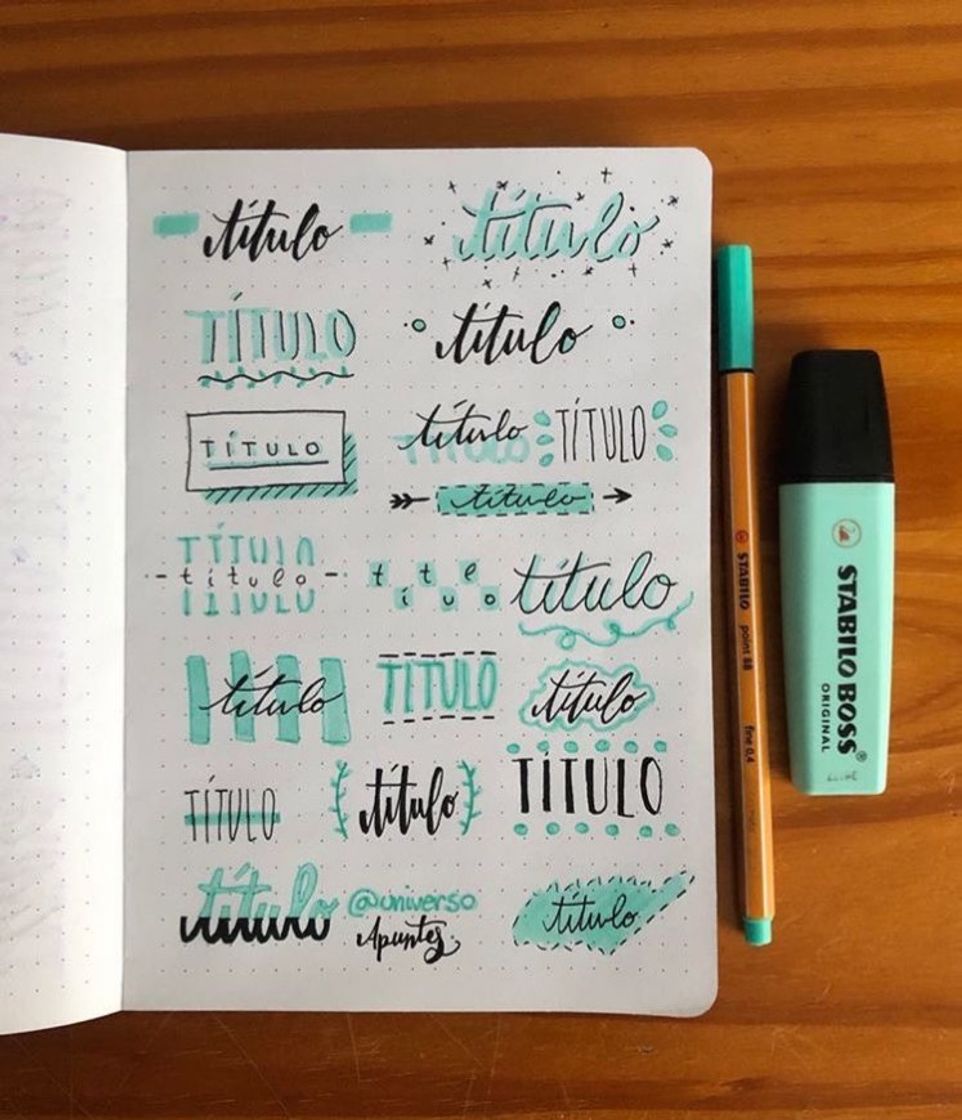 título título
TÍTULO título
TÍTULO título TÍTULO
título
TÍTULO
título título título
TÍTULO
título TÍTULO título
TÍTULO título TÍTULO
título @universo título
Apuntes
STABILO point 88 fine 0,4
STABILO BOSS®
ORIGINAL